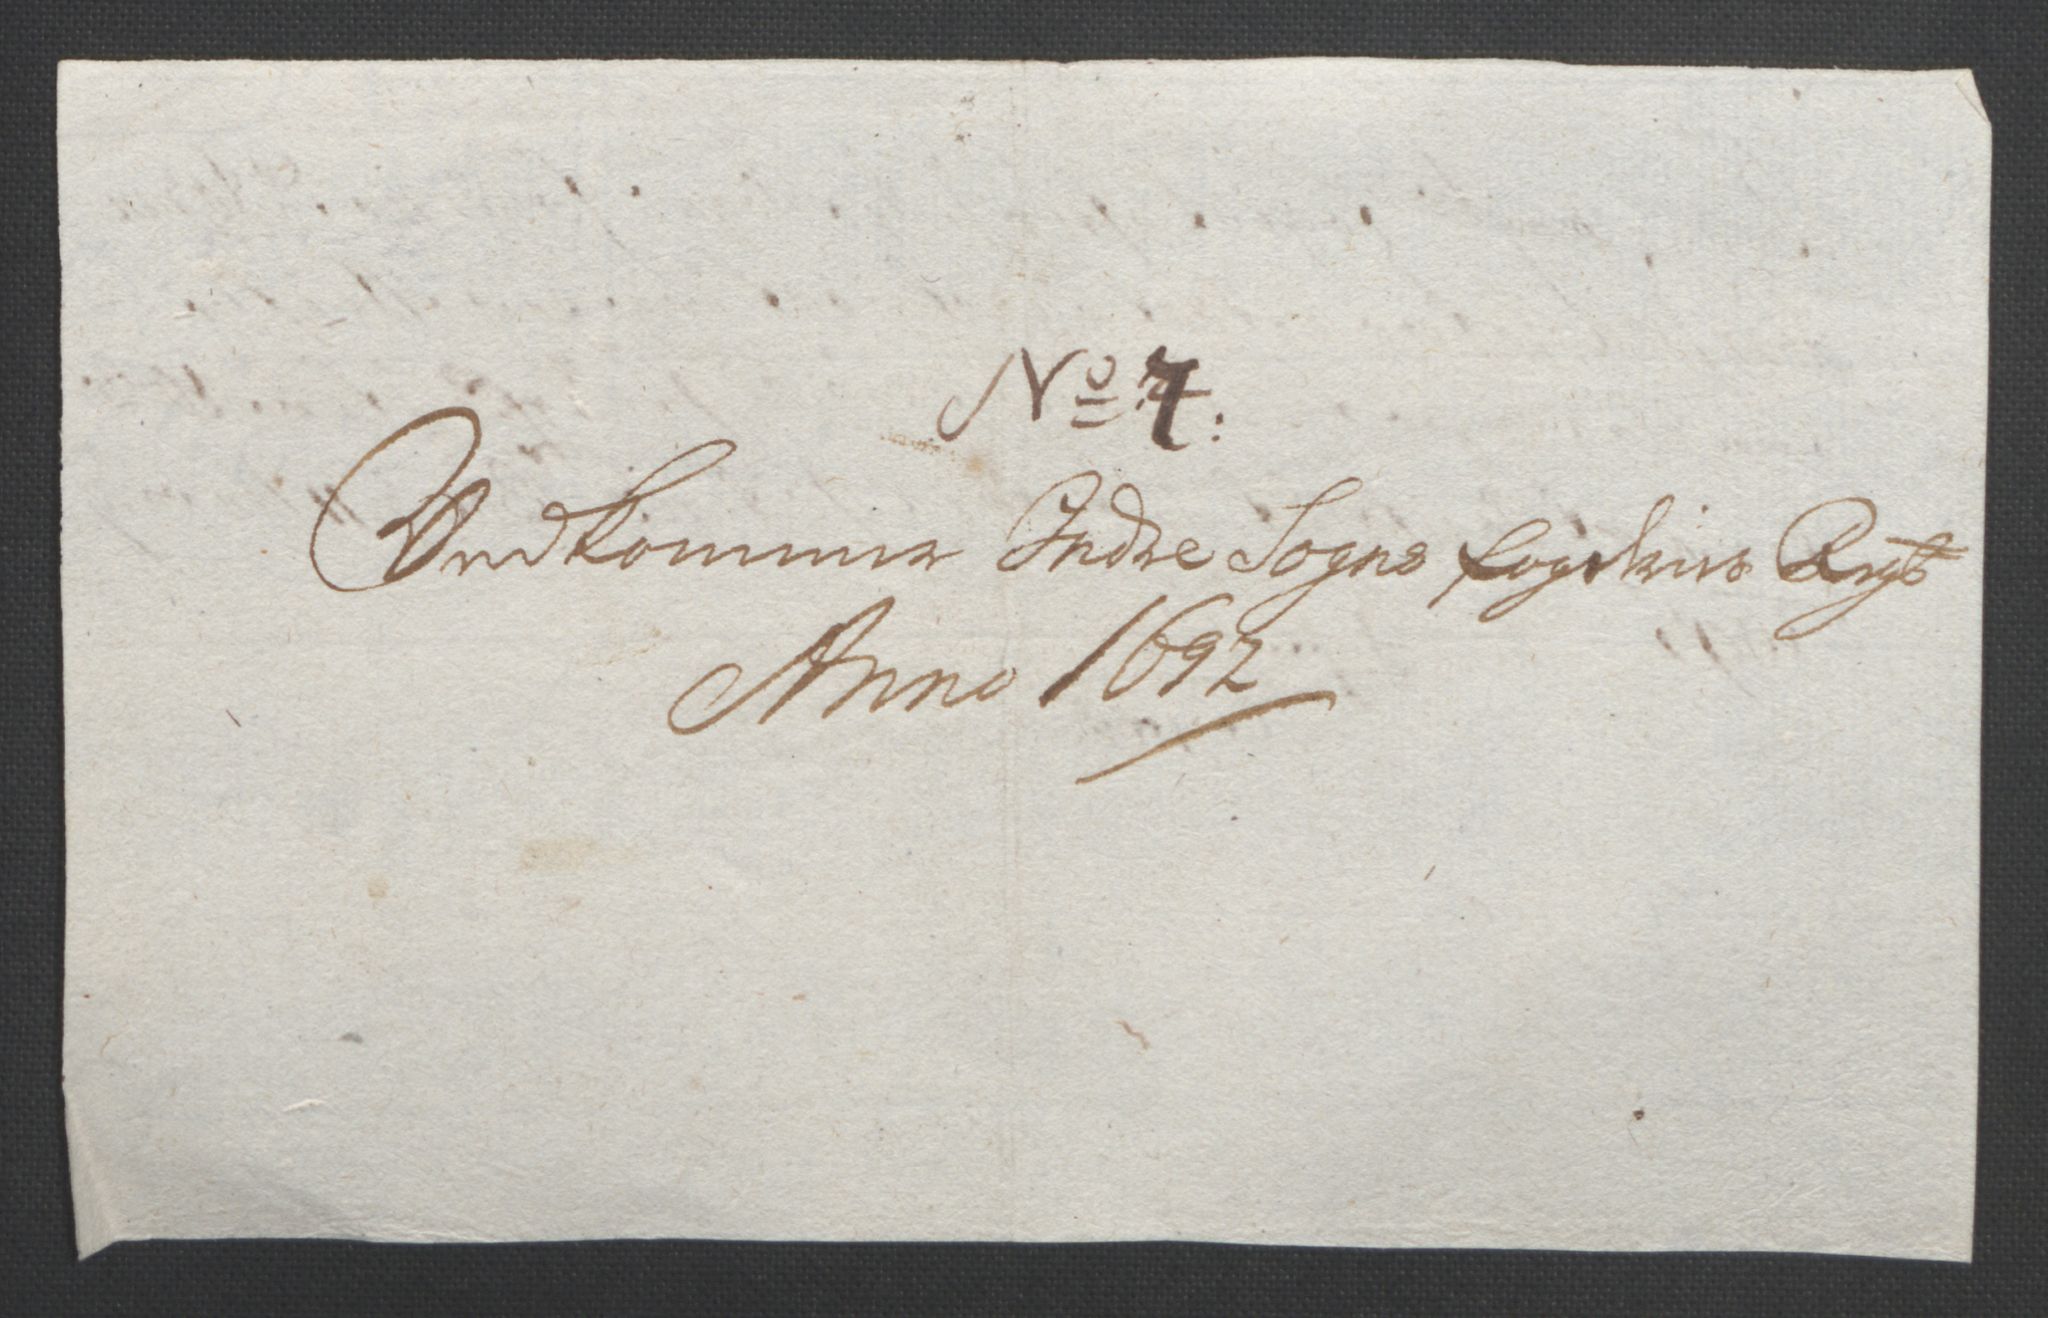 No 7.
Vedkommer Indre Sogns fogderies Regs
Anno 1692